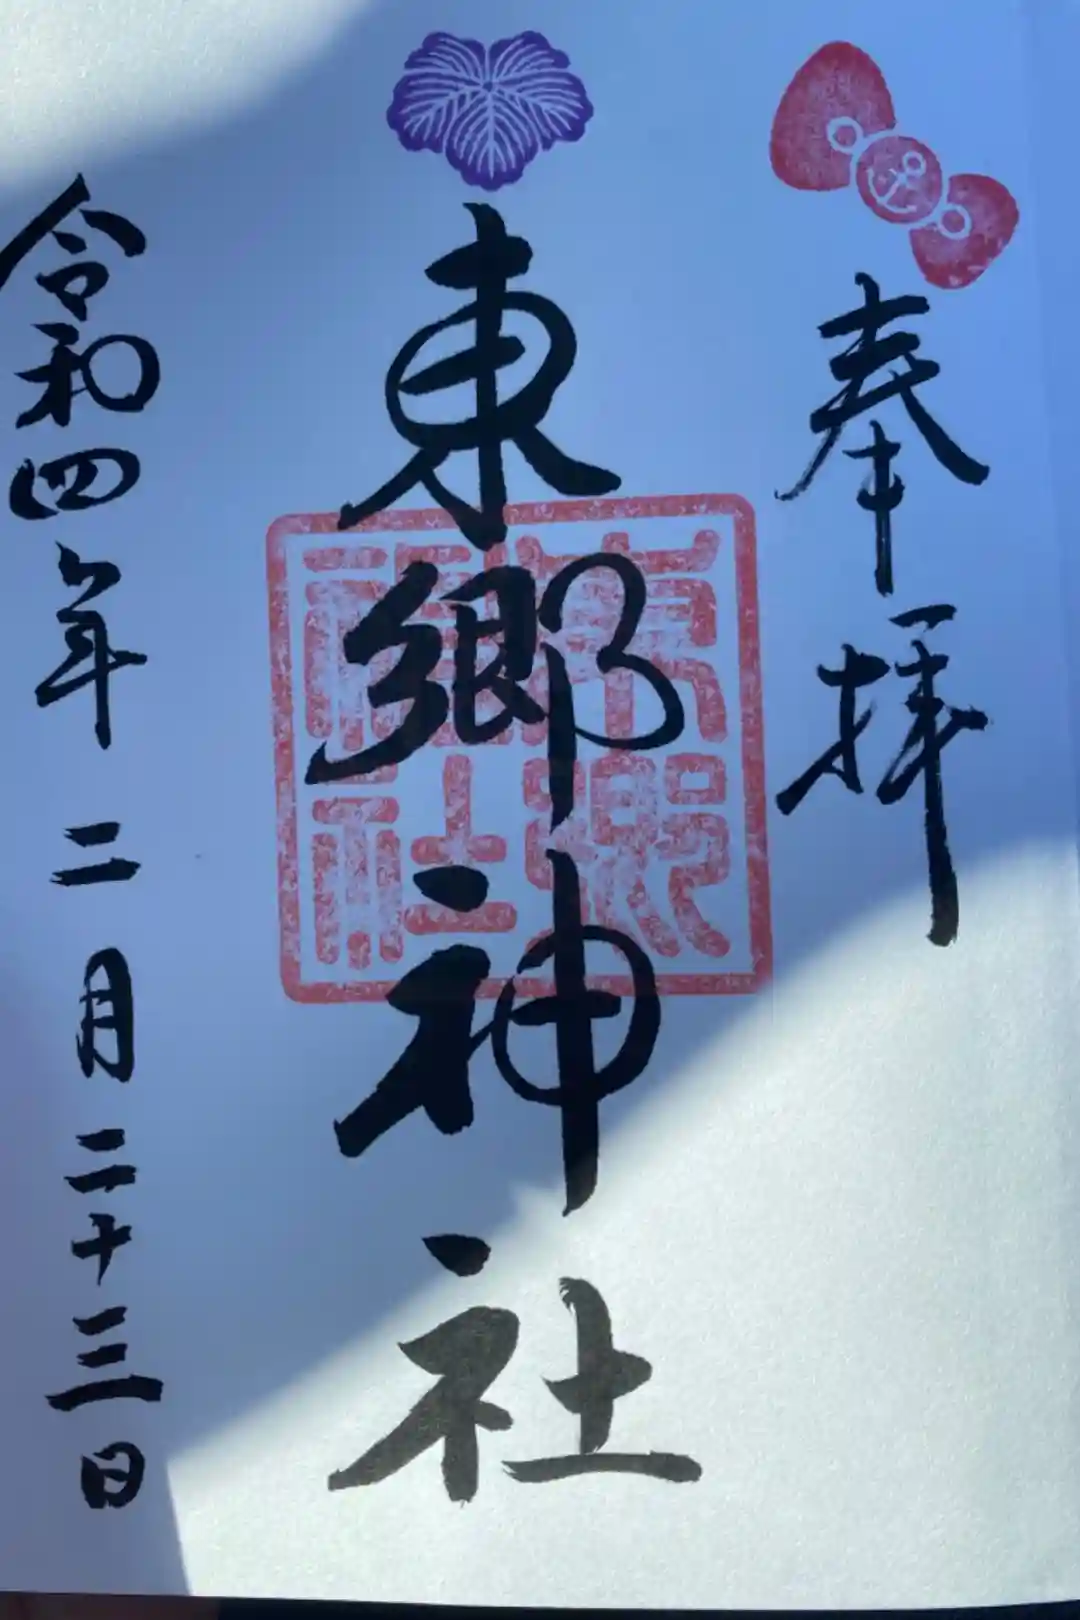 奉拝
東郷神社
東郷
神社
令和四年二月二十三日